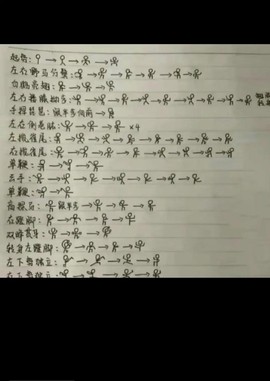 起势:
左右野马分鬃:
白鹤亮翅:
左右搂膝拗步:
手挥琵琶:
左右倒卷肱: ×4
左揽雀尾:
右揽雀尾:
单鞭:
云手:
单鞭:
高探马:
右蹬脚:
双峰贯耳:
转身左蹬脚:
左下势独立:
右下势独立: